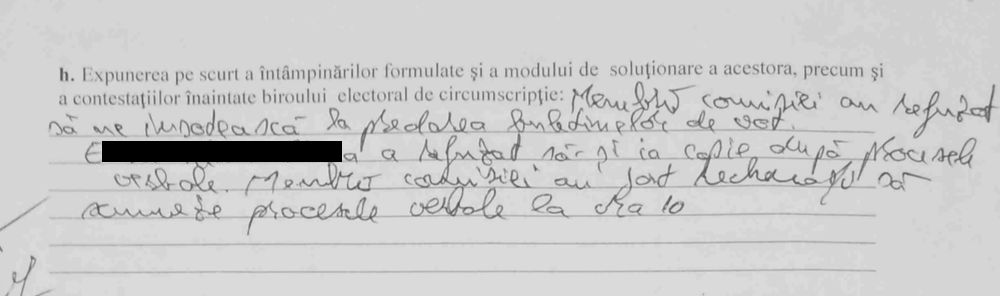 h. Expunerea pe scurt a întâmpinărilor formulate şi a modului de soluţionare a acestora, precum şi
a contestaţiilor înaintate biroului electoral de circumscripţie: Membrii comisiei au refuzat
să ne însoțească la predarea buletinelor de vot.
a refuzat să-și ia copie după procesele
verbale. Membrii comisiei au fost rechemați să
semneze procesele verbale la ora 10